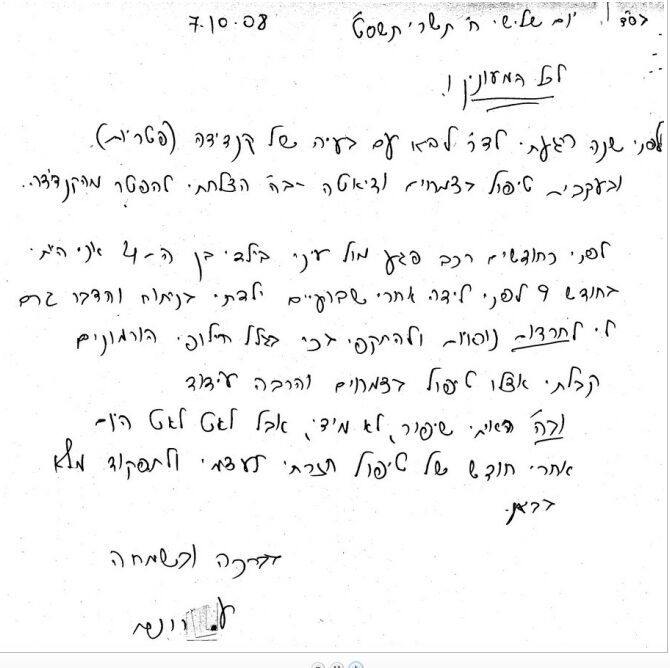 בס"ד יום שלישי ח' תשרי תשס"ט 7.10.08
לכל המעונין!
לפני שנה הגעתי לדר' לבא עם בעיה של קנדידה (פטריות).
ובעקבות טיפול בצמחים ודיאטה ב"ה הצלחתי להפטר מהקנדידה..
לפני כחודשיים רכב פגע מול עיני בילדי בן ה-4 אני הייתי
בחודש 9 לפני לידה אחרי שבועיים ילדתי בניתוח והדבר גרם
לי לחרדות נוספות ולהתקפי בכי בגלל חילופי הורמונים
קבלתי אצלו טיפול בצמחים והרבה עידוד
וב"ה ראיתי שיפור, לא מידי, אבל לאט לאט היום
אחרי חודש של טיפול חזרתי לעצמי ולתפקוד מלא
בבית.
בברכה ובשמחה